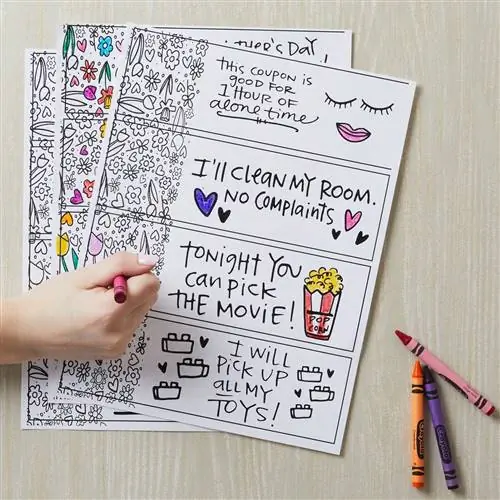 THER'S DAY!
THIS COUPON IS
GOOD FOR
1 HOUR OF
alone time
I'LL CLEAN MY ROOM.
NO COMPLAINTS
TONIGHT YOU
CAN PICK
THE MOVIE!
POP
CORN
I WILL
PICK UP
all MY
TOYS!
Crayola